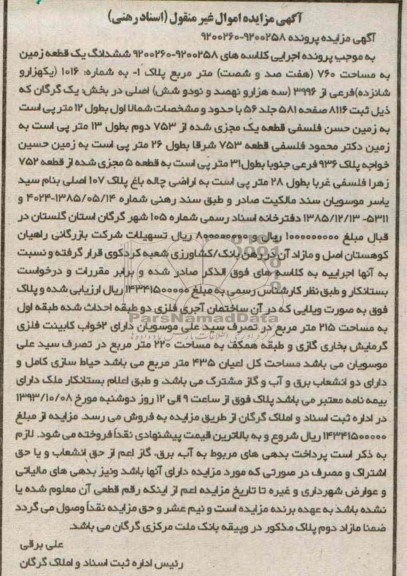 آگهی مزایده اموال غیر منقول (اسناد رهنی)
آگهی مزایده پرونده ۹۲۰۰۲۵۸-۹۲۰۰۲۶۰
به موجب پرونده اجرایی کلاسه های ۹۲۰۰۲۵۸-۹۲۰۰۲۶۰ ششدانگ یک قطعه زمین
به مساحت ۷۶۰ (هفت صد و شصت) متر مربع پلاک ۱- به شماره: ۱۰۱۶ (یکهزارو
شانزده)فرعی از ۳۹۹۶ (سه هزارو نهصد و نودو شش) اصلی در بخش: یک گرگان که
ذیل ثبت ۸۱۱۶ صفحه ۵۸۱ جلد ۵۶ با حدود و مشخصات شمالا اول بطول ۱۲ متر پی است
به زمین حسن فلسفی قطعه یک مجزی شده از ۷۵۳ دوم بطول ۱۳ متر پی است به
زمین دکتر محمود فلسفی قطعه ۷۵۳ شرقا بطول ۲۶ متر پی است به زمین حسین
خواجه پلاک ۹۳۶ فرعی جنوبا بطول۳۱ متر پی است به قطعه ۵ مجزی شده از قطعه ۷۵۲
زهرا فلسفی غربا بطول ۲۸ متر پی است به اراضی چاله باغ پلاک ۱۰۷ اصلی بنام سید
یاسر موسویان سند مالکیت صادر و طبق سند رهنی شماره ۱۳۸۵/۰۵/۱۴-۴۰۲۴ و
۵۳۱۱- ۱۳۸۵/۱۲/۱۳ دفترخانه اسناد رسمی شماره ۱۰۵ شهر گرگان استان گلستان در
قبال مبلغ ۱۰۰۰۰۰۰۰۰۰ ریال و ۸۰۰۰۰۰۰۰۰ ریال تسهیلات شرکت بازرگانی راهیان
کوهستان اصل و مازاد آن در رهن بانک/کشاورزی شعبه کردکوی قرار گرفته و نسبت
به آنها اجراییه به کلاسه های فوق الذکر صادر شده و برابر مقررات و درخواست
بستانکار و طبق نظر کارشناس رسمی به مبلغ ۱۴۳۴۱۵۰۰۰۰۰ ریال ارزیابی شده و پلاک
فوق به صورت ویلایی که در آن ساختمان آجری فلزی دو طبقه احداث شده طبقه اول
به مساحت ۲۱۵ متر مربع در تصرف سید علی موسویان دارای ۲خواب کابینت فلزی
گرمایش بخاری گازی و طبقه همکف به مساحت ۲۲۰ متر مربع در تصرف سید علی
موسویان می باشد مساحت کل اعیان ۴۳۵ متر مربع می باشد حیاط سازی کامل و
دارای دو انشعاب برق و آب و گاز مشترک می باشد و طبق اعلام بستانکار ملک دارای
بیمه نامه معتبر می باشد پلاک فوق از ساعت ۹ الی ۱۲ روز دوشنبه مورخ ۱۳۹۳/۱۰/۰۸
در اداره ثبت اسناد و املاک گرگان از طریق مزایده به فروش می رسد. مزایده از مبلغ
۱۴۳۴۱۵۰۰۰۰۰ ریال شروع و به بالاترین قیمت پیشنهادی نقدا فروخته می شود. لازم
به ذکر است پرداخت بدهی های مربوط به آب، برق، گاز اعم از حق انشعاب و یا حق
اشتراک و مصرف در صورتی که مورد مزایده دارای آنها باشد ونیز بدهی های مالیاتی
و عوارض شهرداری و غیره تا تاریخ مزایده اعم از اینکه رقم قطعی آن معلوم شده یا
نشده باشد به عهده برنده مزایده است و نیم عشر و حق مزایده نقداً وصول می گردد
ضمنا مازاد دوم پلاک مذکور در وپیقه بانک ملت مرکزی گرگان می باشد.
علی برقی
رئیس اداره ثبت اسناد و املاک گرگان
ParsNamadData